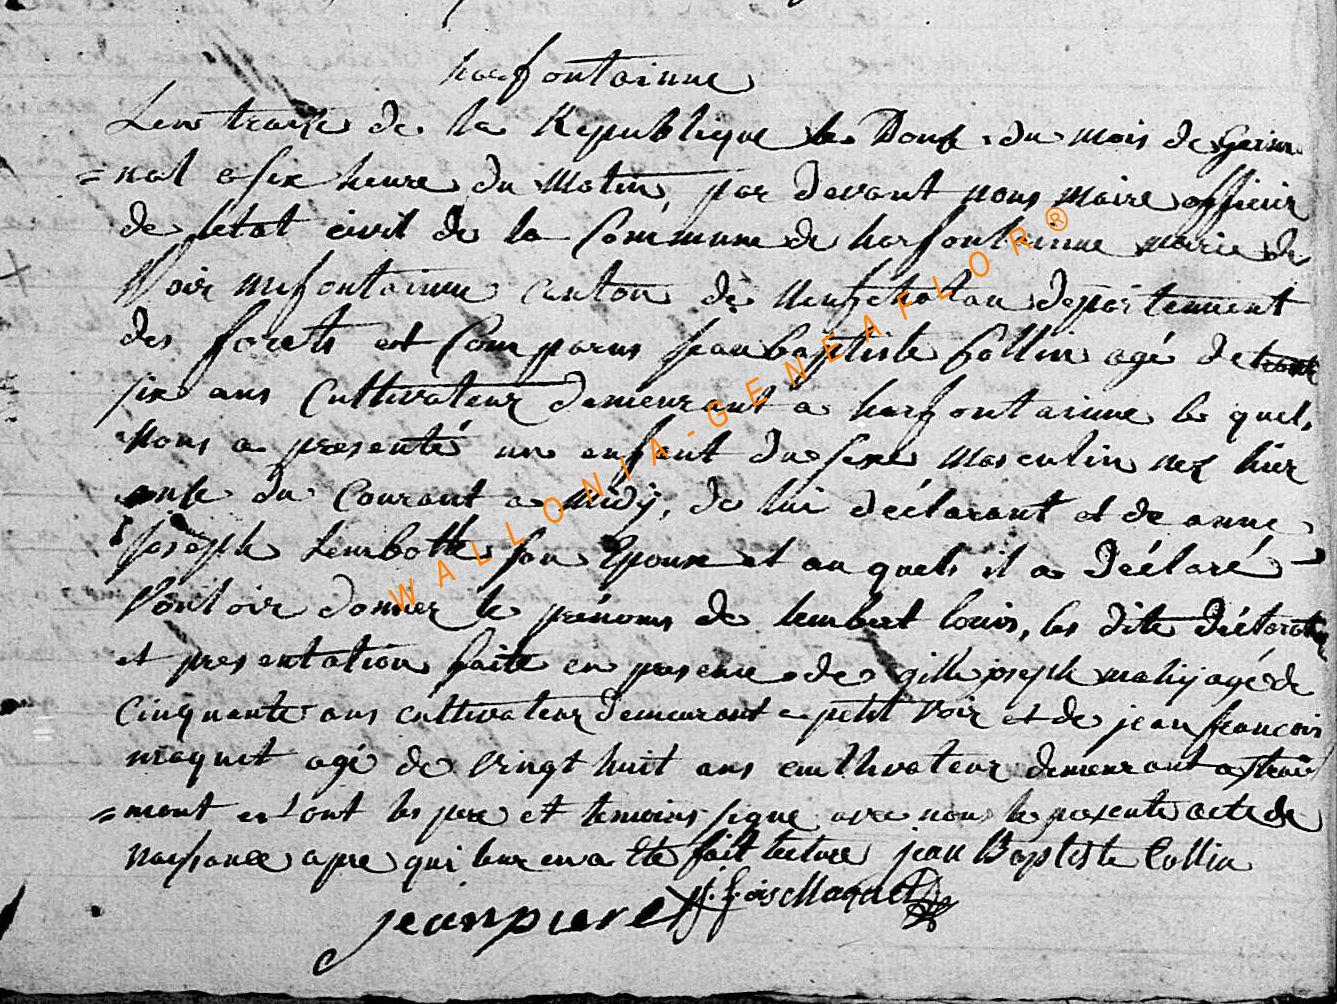 harfontainne
Lan treize de la Republique le Douse du mois de Germ
=nal a six heure du Matin, par devant nous maire officier
de letat civil de la Commune de harfontainne mairie de
Noir mefontainne Canton de Neufchatau departement
des forets est Comparus jean baptiste Collin agé de trente
six ans Cultivateur demeurant a harfontainne le quel,
Nous a presenté un enfant du sexe Masculin nez hier
onse du Courant a Midÿ, de lui déclarant et de anne
joseph Lembotte son Epouse et au quels il a Déclaré
Vouloir donner le prénoms de lembert louis, les dite déclaration
et presentation faite en presence de gille joseph mahy agé de
Cinquante ans cultivateur demeurant a petit Voir et de jean francois
maquet agé de vingt huit ans cultivateur demeurant a
=mont et ont les pere et temoins signe avec nous le presente acte de
Naissance apre qui leur en a Eté fait lecture jean Baptiste Collin
jean piere j. f. ois Maquet
WALLONIA-GENEAFLOR®